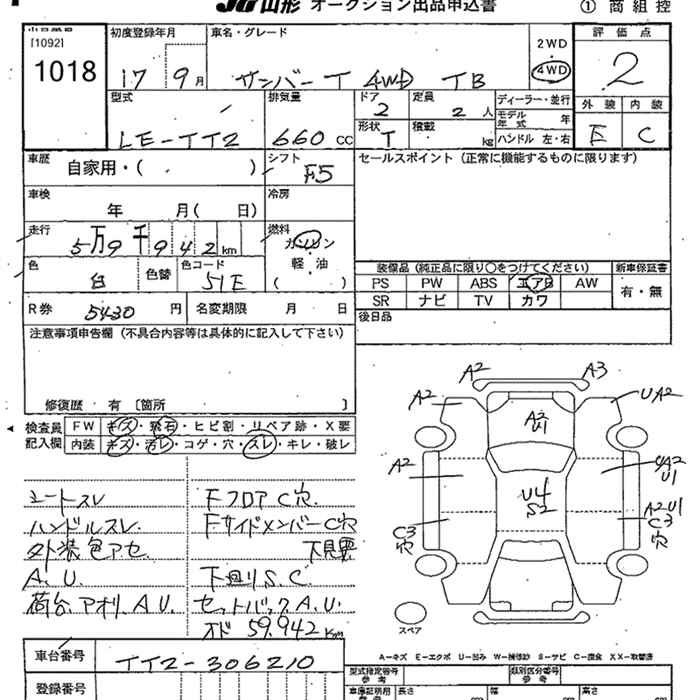 山形 オークション出品申込書
① 商組控
[1092]
1018
初度登録年月
17年 9月
車名・グレード
サンバー T 4WD TB
2WD
4WD
評価点
2
型式
LE-TT2
排気量
660 CC
ドア
2
定員
2人
形状
T
積載
kg
ディーラー・並行
モデル年式 年
ハンドル 左・右
外装
E
内装
C
車歴
自家用・( )
シフト
F5
セールスポイント (正常に機能するものに限ります)
車検
年 月( 日)
冷房
走行
5万9千942km
燃料
ガソリン
軽・油
( )
色
白
色替
色コード
51E
装備品 (純正品に限り○をつけてください)
新車保証書
PS PW ABS エアB AW
SR ナビ TV カワ
有・無
R券
5430円
名変期限 月 日
後日品
注意事項申告欄 (不具合内容等は具体的に記入して下さい)
修復歴 有 [箇所 ]
検査員記入欄
FW キズ・飛石・ヒビ割・リペア跡・X要
内装 キズ・汚レ・コゲ・穴・スレ・キレ・破レ
シートスレ
ハンドルスレ.
外装色アセ.
A.U.
荷台.アオリ.A.U.
Fフロア C穴.
Fサイドメンバー C穴
下見要
下回り S.C
セットバック A.U.
オド 59.942km
A2
A3
A2
UA2
A2
U1
A2
UA2
U1
U4
S2
C3
穴
A2U1
C3
穴
スペア
A-キズ E-エクボ U-凹み W-補修跡 S-サビ C-腐食 XX-取替済
車台番号
TT2-306210
登録番号
型式指定番号
参考
類別区分番号
参考
車庫証明用
参考
長さ
幅
高さ